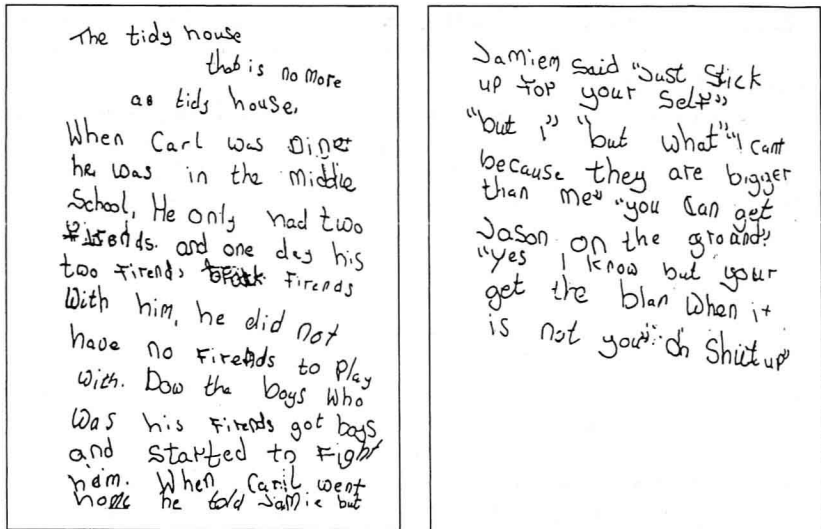 The tidy house
that is no more
a tidy house.
When Carl was
he was in the middle
School, He only had two
Firends. and one day his
two Firends Firends
With him, he did not
have no Firends to Play
with. Dow the boys who
Was his Firends got boys
and started to Fight
him. When Caril went
home he told Jamie but
Jamiem Said "Just Stick
up For your Self"
"but I" "but what" "I cant
because they are bigger
than me" "you Can get
Jason on the groand"
"yes I know but your
get the blan When it
is not you" "oh Shut up"